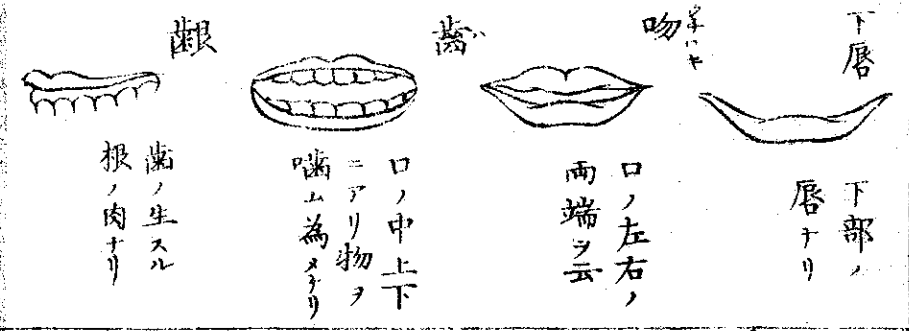 下唇
下部ノ
唇ナリ
吻
口ノ左右ノ
両端ヲ云
歯
ハ
口ノ中上下
ニアリ物ヲ
噛ム為メナリ
齦
歯ノ生スル
根ノ肉ナリ